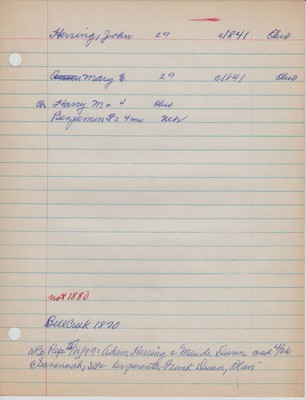 Herring, John 29 c1841 Ohio
Mary E 29 c1841 Ohio
Ch Harry M = 4 Ohio
Benjamin F = 4mo Nebr
not 1880
Bell Creek 1870
Rep 5/11/99 = Adam Herring & Maude Dunn med 4/26
@ Savannah, her parents, Frank Dunn,